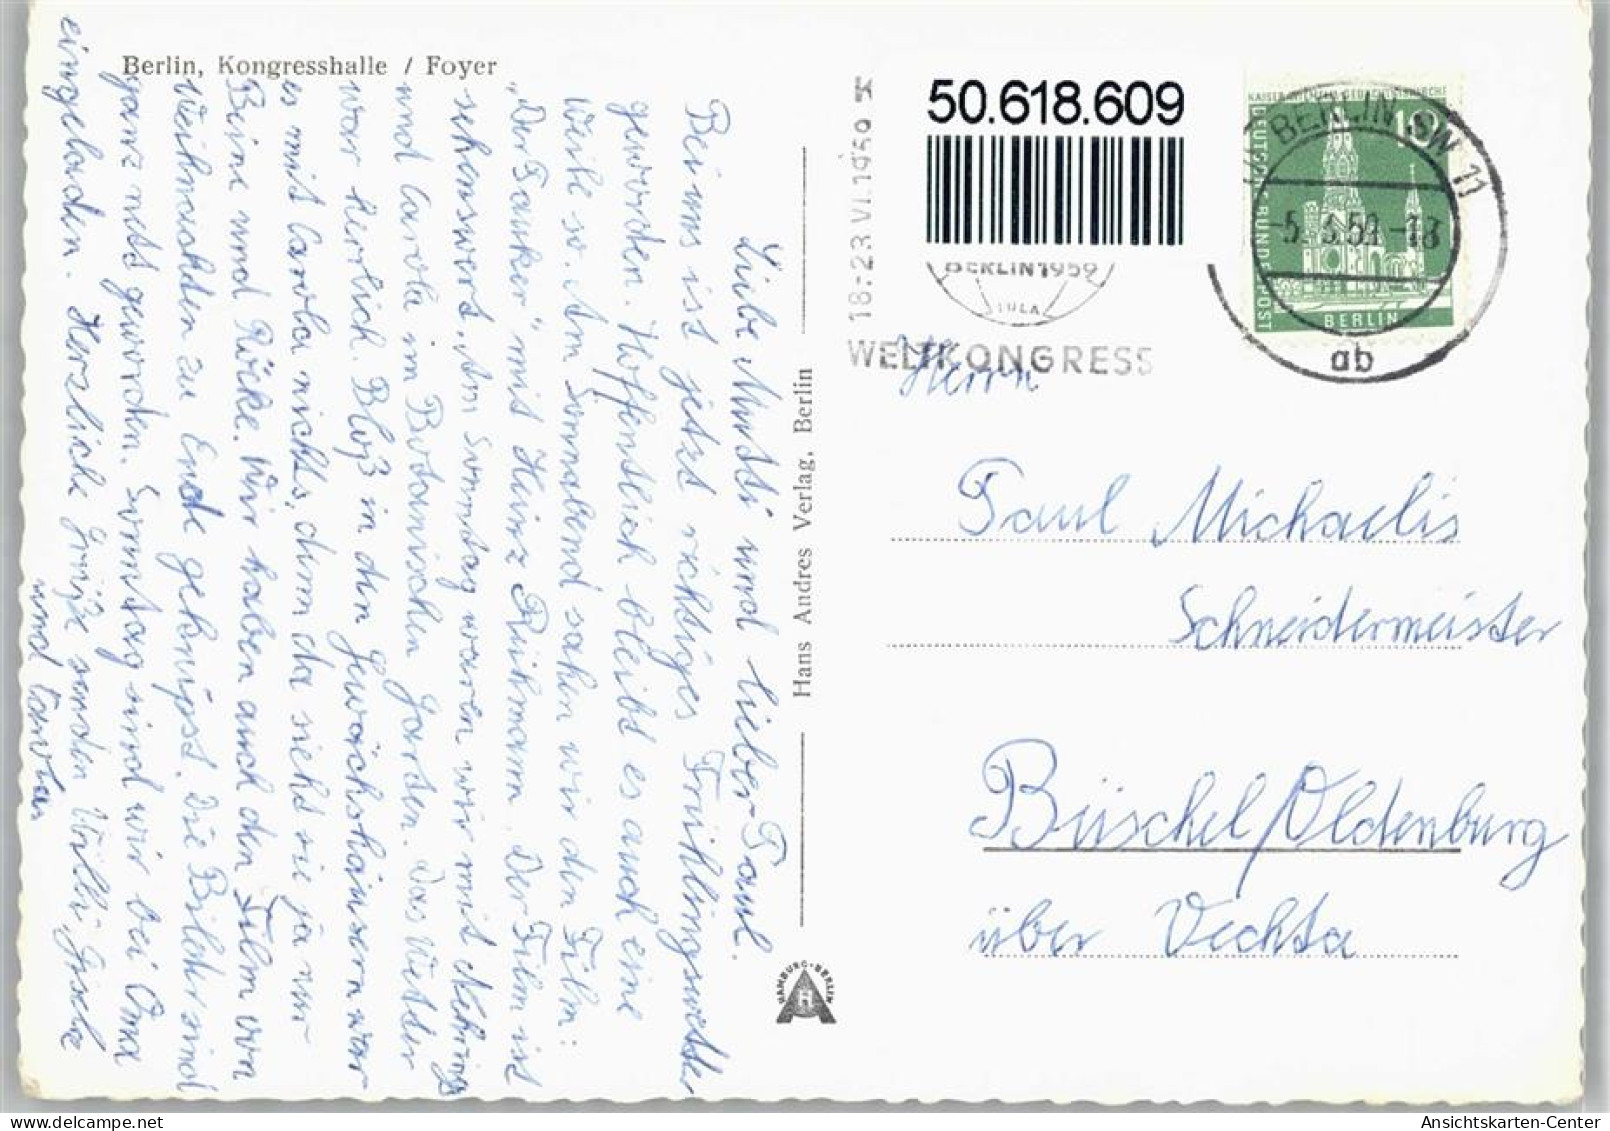 Berlin, Kongresshalle / Foyer
Liebe Mutti und lieber Paul.
Bei uns ist jetzt richtiges Frühlingswetter
geworden. Hoffentlich bleibt es auch eine
Weile so. Am Sonnabend sahen wir den Film:
„Der Pauker" mit Heinz Rühmann. Der Film ist
sehenswert. Am Sonntag waren wir mit
und Carola im Botanischen Garten. Das Wetter
war herrlich. Bloß in den Gewächshäusern war
es mit Carola nichts, denn da sieht sie ja nur
Beine und Röcke. Wir haben auch den Film von
Weihnachten zu Ende geknipst. Die Bilder sind
ganz nett geworden. Sonntag sind wir bei Oma
eingeladen. Herzliche Grüße senden Willi,
und Carola
Hans Andres Verlag, Berlin
HAMBURG-BERLIN
H
50.618.609
18.-23.VI.1959
BERLIN 1959
WELTKONGRESS
KAISER-WILHELM-GEDÄCHTNISKIRCHE
10
DEUTSCHE BUNDESPOST
BERLIN
BERLIN SW 11
-5.3.59.-18
ab
Herrn
Paul Michaelis
Schneidermeister
Büschel/Oldenburg
über Vechta
Ansichtskarten-Center